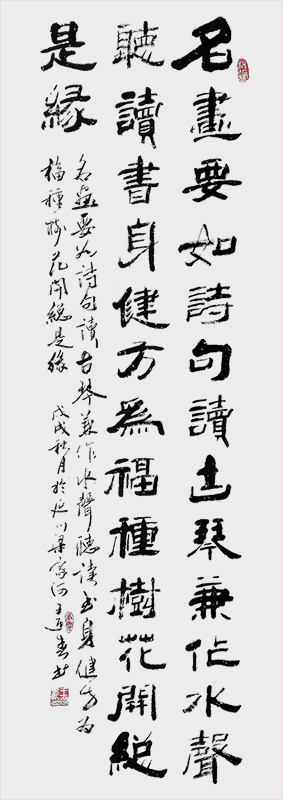 名畫要如詩句讀古琴兼作水聲
聽讀書身健方為福種樹花開總
是緣
名畫要如詩句讀古琴兼作水聲聽讀書身健方為
福種樹花開總是緣 戊戌秋月於延川梁家河